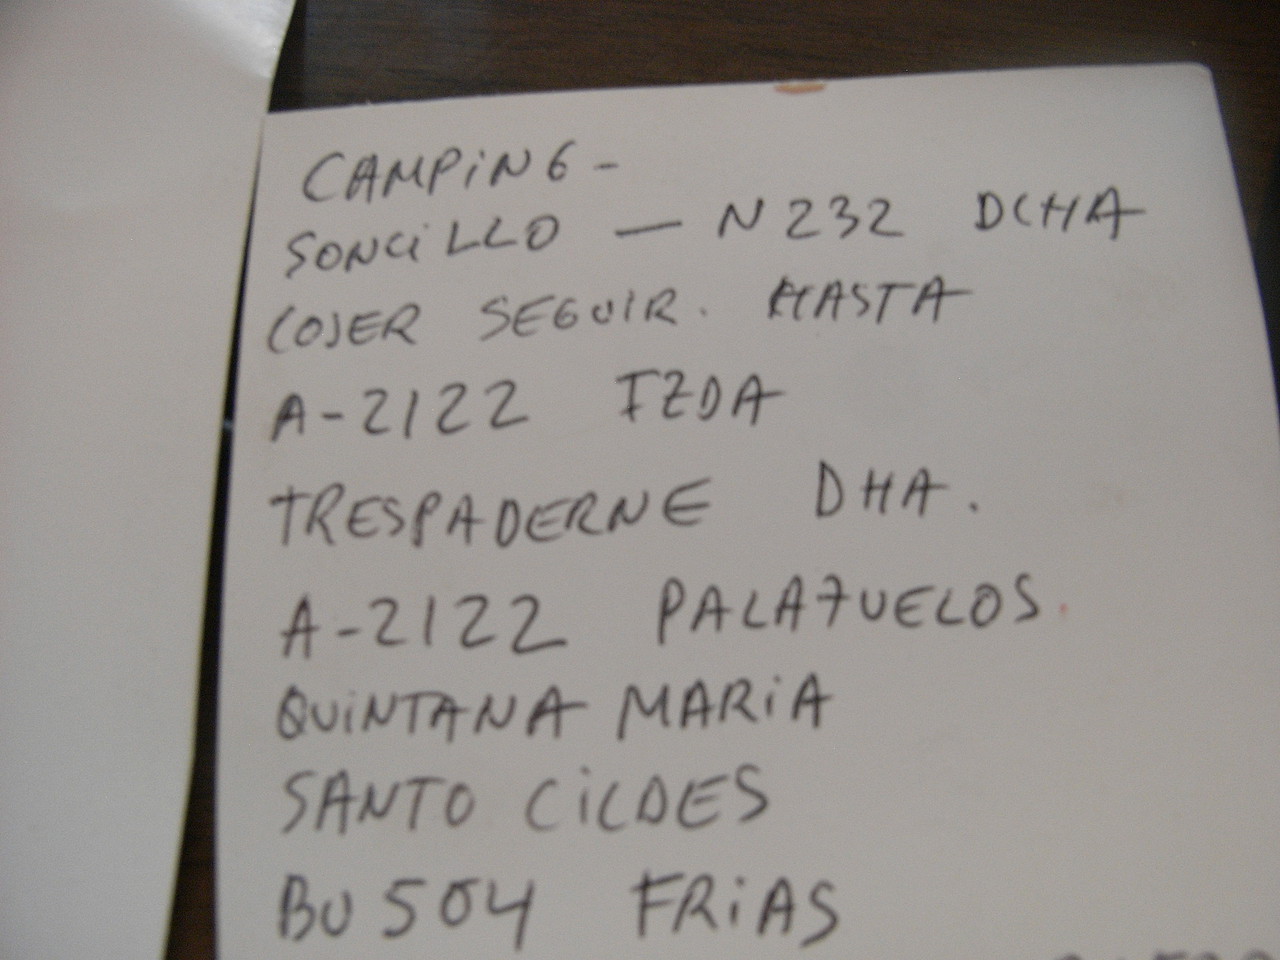 CAMPiNG -
SONCiLLO — N232 DCHA
COJER SEGUIR. HASTA
A-2122 IZDA
TRESPADERNE DHA.
A-2122 PALAZUELOS.
QUiNTANA MARiA
SANTO CiLDES
BU 504 FRiAS